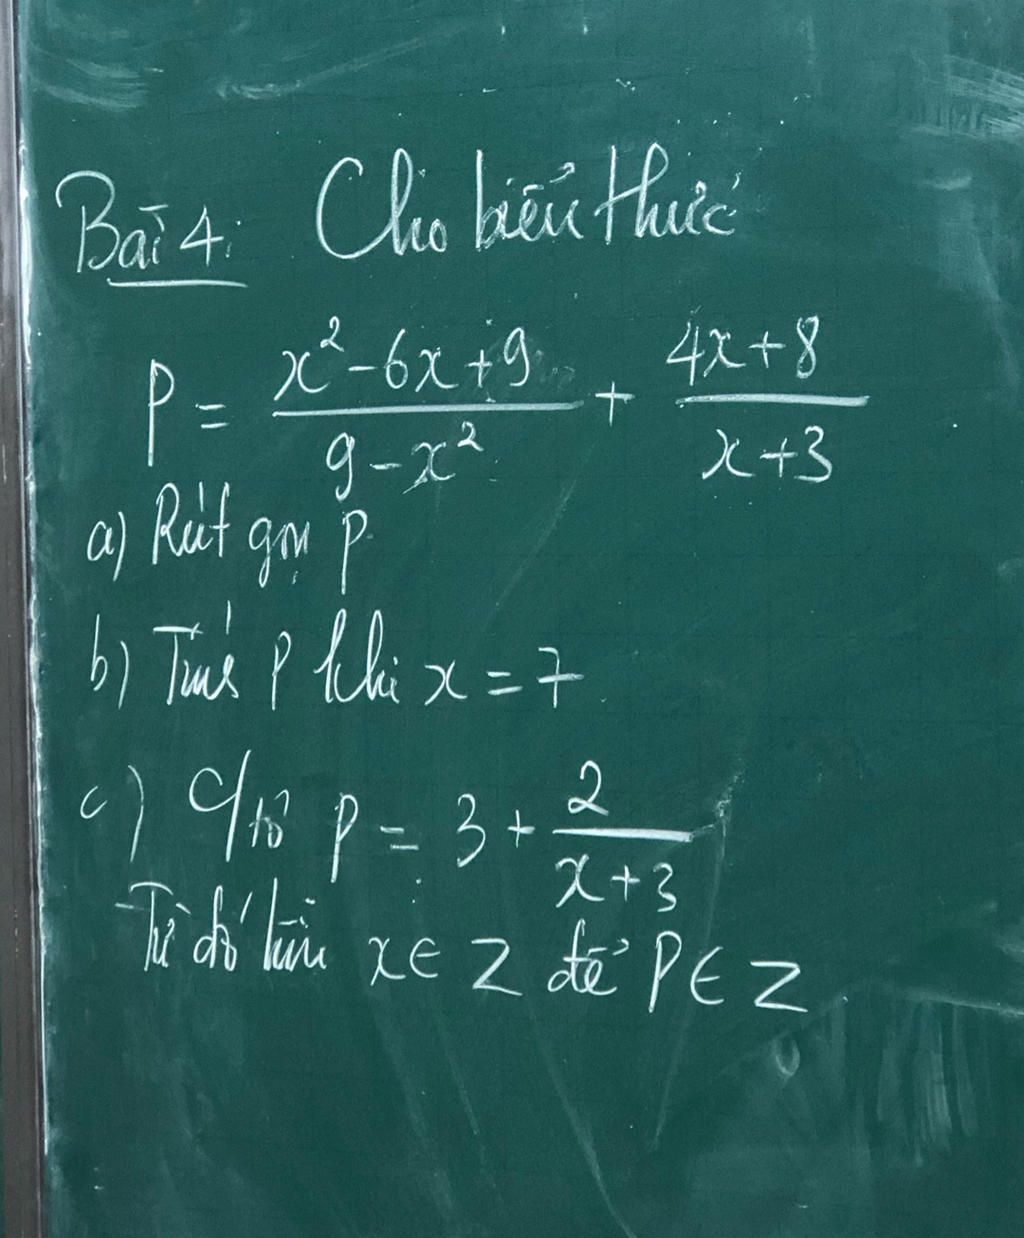 Bài 4: Cho biểu thức
P = \frac{x^2-6x+9}{9-x^2} + \frac{4x+8}{x+3}
a) Rút gọn P.
b) Tính P khi x = 7
c) C/tỏ P = 3 + \frac{2}{x+3}
Từ đó tìm x ∈ Z để P ∈ Z